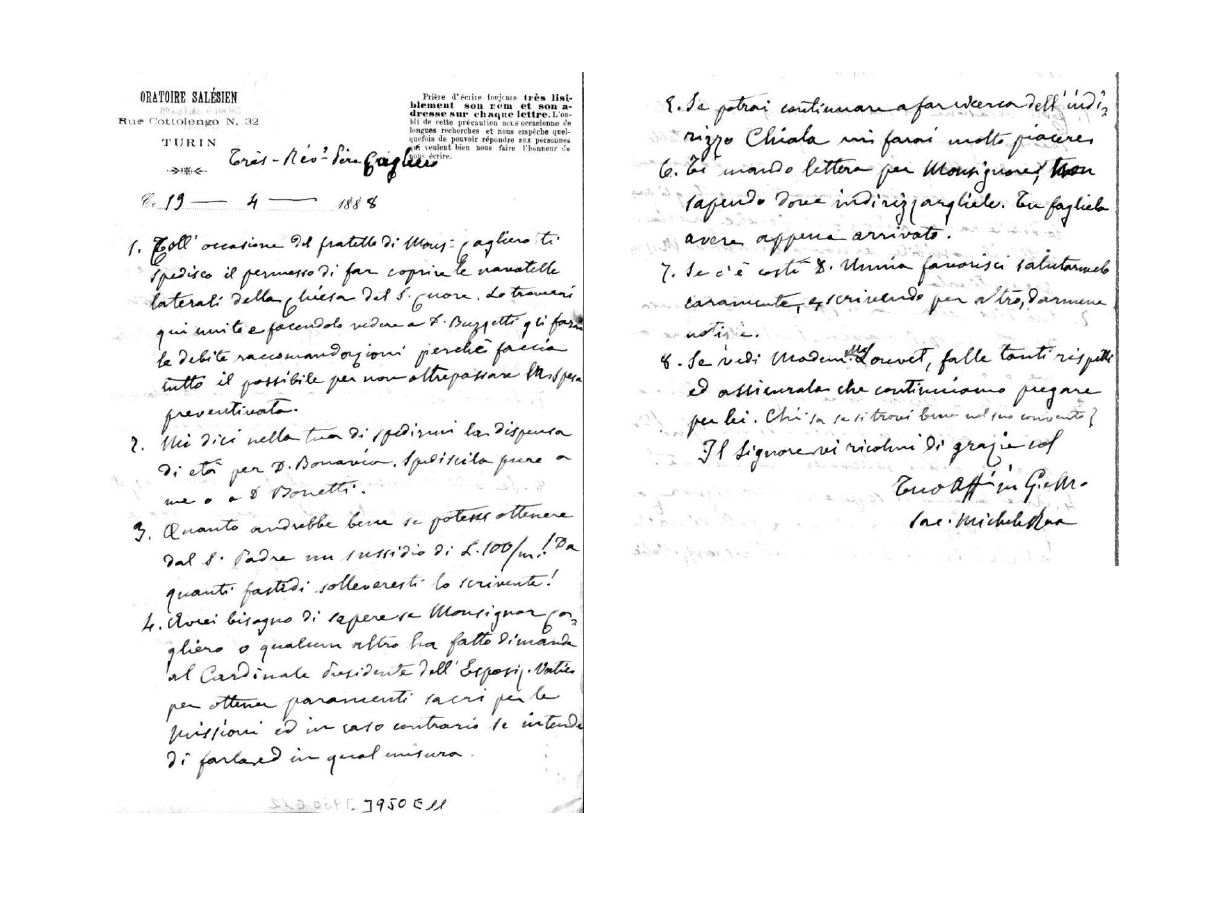 ORATOIRE SALÉSIEN
Rue Cottolengo N. 32
TURIN
Prière d'écrire toujours très lisi-
blement son nom et son a-
dresse sur chaque lettre. L'ou-
bli de cette précaution nous occasionne de
longues recherches et nous empêche quel-
quefois de pouvoir répondre aux personnes
qui veulent bien nous faire l'honneur de
nous écrire.
Très-Révd Père Cagliero
T. 19 — 4 — 1888
1. Coll' occasione del fratello di Mons. Cagliero ti
spedisco il permesso di far coprire le navatelle
laterali della Chiesa del S. Cuore. Lo troverai
qui unito e facendolo vedere a D. Buzzetti gli farai
le debite raccomandazioni perchè faccia
tutto il possibile per non oltrepassare la spesa
preventivata.
2. Mi dici nella tua di spedirmi la dispensa
di età per D. Bonavia. Spediscila pure a
me o a D Bonetti.
3. Quanto andrebbe bene se potessi ottenere
dal S. Padre un sussidio di L. 100/m! Da
quanti fastidi solleveresti lo scrivente!
4. Avrei bisogno di sapere se Monsignor Ca-
gliero o qualcun altro ha fatto dimanda
al Cardinale Presidente dell'Esposiz. Vatic.
per ottener paramenti sacri per le
missioni ed in caso contrario se intende
di farla ed in qual misura.
J950C11
5. Se potrai continuare a far ricerca dell'indi-
rizzo Chiala mi farai molto piacere
6. Ti mando lettera per Monsignore, non
sapendo dove indirizzargliele. Tu fagliela
avere appena arrivato.
7. Se c'è costì D. Unia favorisci salutarmelo
caramente, e, scrivendo per altro, darmene
notizie.
8. Se vedi Madem.lla Louvet, falle tanti rispetti
ed assicurala che continuiamo pregare
per lei. Chi sa se si trovi bene nel suo convento?
Il Signore vi ricolmi di grazie col
Tuo Aff. in G. e M.
Sac. Michele Rua